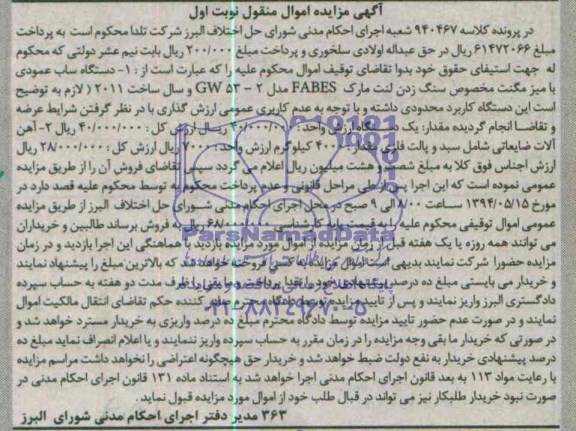 آگهی مزایده اموال منقول نوبت اول
در پرونده کلاسه ۹۴۰۴۶۷ شعبه اجرای احکام مدنی شورای حل اختلاف البرز شرکت تلدا محکوم است به پرداخت
مبلغ ۶۱۴۷۲۰۶۶ ریال در حق عبداله اولادی سلخوری و پرداخت مبلغ ۲۰۰/۰۰۰ ریال بابت نیم عشر دولتی که محکوم
له جهت استیفای حقوق خود بدوا تقاضای توقیف اموال محکوم علیه را که عبارت است از : ۱- دستگاه ساب عمودی
با میز مگنت مخصوص سنگ زدن لنت مارک FABES مدل ۲ - GW ۵۳ و سال ساخت ۲۰۱۱ ( لازم به توضیح
است این دستگاه کاربرد محدودی داشته و با توجه به عدم کاربری عمومی ارزش گذاری با در نظر گرفتن شرایط عرضه
و تقاضا انجام گردیده مقدار: یک دستگاه ارزش واحد : ۴۰/۰۰۰/۰۰۰ ریال ارزش کل : ۴۰/۰۰۰/۰۰۰ ریال ۲- آهن
آلات ضایعاتی شامل سبد و پالت فلزی مقدار : ۴۰۰۰ کیلوگرم ارزش واحد : ۷۰۰۰ ریال ارزش کل : ۲۸/۰۰۰/۰۰۰ ریال
ارزش اجناس فوق کلا به مبلغ شصت و هشت میلیون ریال اعلام می گردد سپس تقاضای فروش آن را از طریق مزایده
عمومی نموده است که این اجرا پس از طی مراحل قانونی و عدم پرداخت محکوم به توسط محکوم علیه قصد دارد در
مورخ ۱۳۹۴/۰۵/۱۵ ساعت ۸/۰۰ الی ۹ صبح در محل اجرای احکام مدنی شورای حل اختلاف البرز از طریق مزایده
عمومی اموال توقیفی محکوم علیه را به قیمت پایه کارشناسی ریال به فروش برساند طالبین و خریداران
می توانند همه روزه یا یک هفته قبل از زمان مزایده از اموال مورد مزایده بازدید با هماهنگی این اجرا بازدید و در زمان
مزایده حضورا شرکت نمایند بدیهی است اموال مزایده به کسی فروخته خواهد شد که بالاترین مبلغ را پیشنهاد نمایند
و خریدار می بایستی مبلغ ده درصد پیشنهادی خود را نقدا پرداخت و مابقی را ظرف مدت دو هفته به حساب سپرده
دادگستری البرز واریز نمایند و پس از تایید مزایده توسط دادگاه محترم صادر کننده حکم تقاضای انتقال مالکیت اموال
نمایند و در صورت عدم حضور تایید مزایده توسط دادگاه محترم مبلغ ده درصد واریزی به خریدار مسترد خواهد شد و
در صورتی که خریدار ما بقی وجه مزایده را در زمان مقرر به حساب سپرده واریز ننمایند و یا اعلام انصراف نماید مبلغ ده
درصد پیشنهادی خریدار به نفع دولت ضبط خواهد شد و خریدار حق هیچگونه اعتراضی را نخواهد داشت مراسم مزایده
با رعایت مواد ۱۱۳ به بعد قانون اجرای احکام مدنی اجرا خواهد شد به استناد ماده ۱۳۱ قانون اجرای احکام مدنی در
صورت نبود خریدار طلبکار نیز می تواند در قبال طلب خود از اموال مورد مزایده قبول نماید .
۳۶۳ مدیر دفتر اجرای احکام مدنی شورای البرز
ParsNamadData
۰۲۱-۸۸۳۴۹۶۷۰-۵